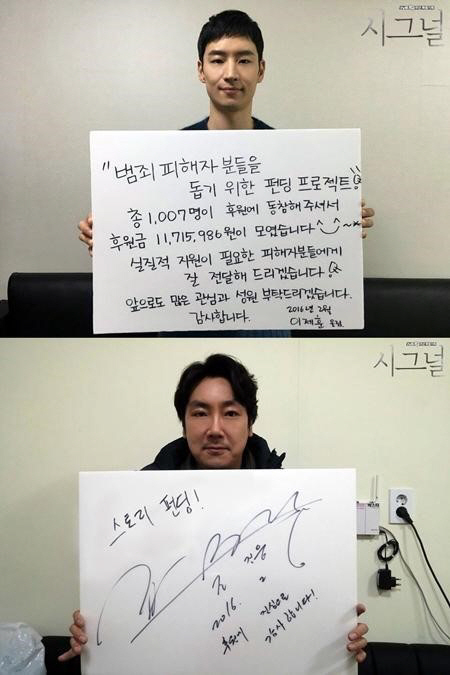 시그널
"범죄 피해자 분들을
돕기 위한 펀딩 프로젝트!
총 1,007명이 후원에 동참해주셔서
후원금 11,715,986원이 모였습니다
실질적 지원이 필요한 피해자분들에게
잘 전달해 드리겠습니다!
앞으로도 많은 관심과 성원 부탁드리겠습니다.
감사합니다.
2016년 2월
이제훈 올림.
시그널
스토리 펀딩!
조 진웅
2016. 2
후원에 진심으로
감사 합니다!